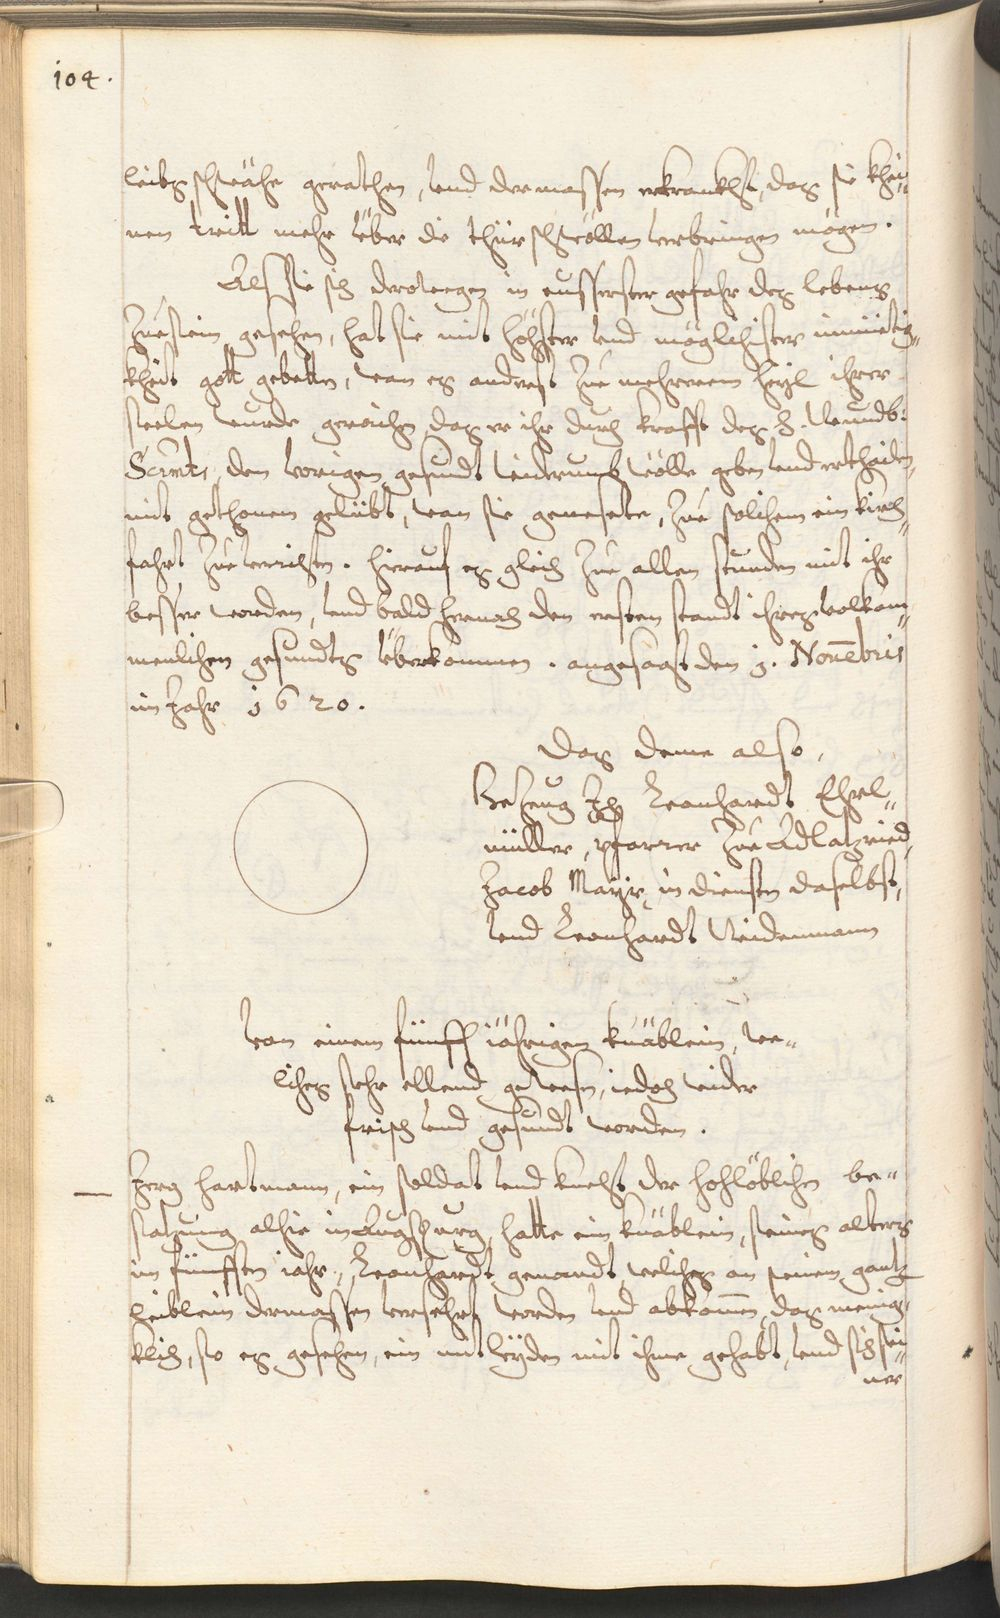 104.
leibs schwähe gerathen, vnd dermassen erkrankht, das sie khei„
nen tritt mehr über die thürschwöllen verbringen mögen.
Als sie sich derowegen in eusserster gefahr des lebens
zue sein gesehen, hat sie mit höhster vnd möglichister inniig„
kheit gott gebetten, wan es anderst zue mehrerem heyl ihrer
seelen wurde geraichen, das er ihr durch krafft des H. Wundb:
Scrmts, den vorigen gesundt widerumb wölle geben vnd erthailen,
mit gethonem gelübt, wan sie genesete, zue solichem ein kirch„
fahrt zue verrichten. Hierauf es gleich zue allen stunden mit ihr
besser worden, vnd bald hernach den ersten standt ihres volkom„
menlichen gesundts überkommen. angesagt den j. Nouēbris
im Jahr j620.
Das deme also,
Bezeug Ich Leonhardt Ehel„
müller, pfarrer zue Adlatzried,
Jacob Mayr, in diensten daselbst,
vnd Leonhardt Weidenmann
Von einem fünff iährigen knäblein, we„
liches sehr ellend gewesen, iedoch wider
frisch vnd gesundt worden.
Jerg Hartmann, ein soldat vnd knecht der hohlöblichen be„
satzung alhie in Augspurg, hatte ein knäblein, seines alters
im fünfften iahr, Leonhardt genandt, weliches an seinem gantz
leiblein dermassen versehrt worden vnd abkomen, das menig„
klich, so es gesehen, ein mitleyden mit ihme gehabt, vnd sich sei„
ner